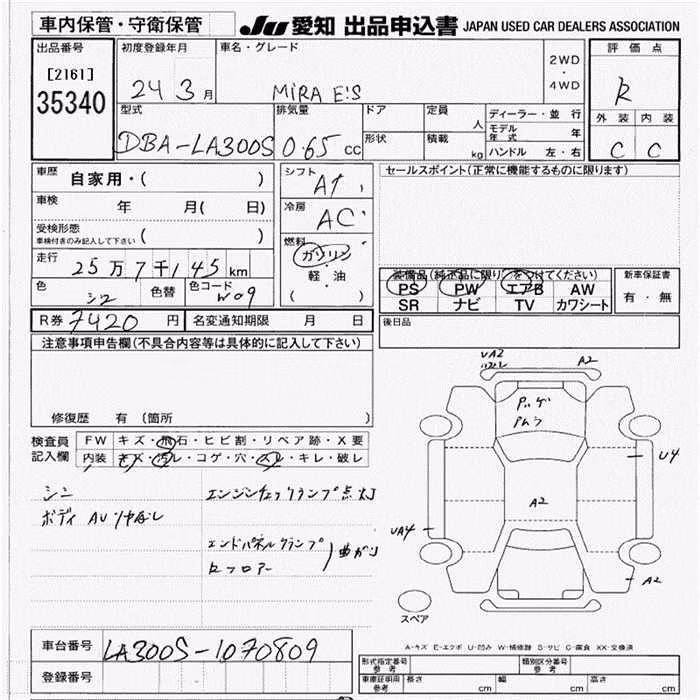 車内保管・守衛保管
JU 愛知 出品申込書 JAPAN USED CAR DEALERS ASSOCIATION
出品番号
[2161]
35340
初度登録年月
24 3月
車名・グレード
MIRA E'S
2WD
・
4WD
評価点
R
外装 内装
C C
型式
DBA-LA300S
排気量
0.65 cc
ドア
形状
定員
人
積載
kg
ディーラー・並行
モデル年式 年
ハンドル 左・右
車歴
自家用・( )
車検
年 月( 日)
受検形態
車検付きのみ記入して下さい ( )
走行
25万7千145km
色
シロ
色替
色コード
W09
R券 7420 円
名変通知期限 月 日
シフト
AT
冷房
AC
燃料
ガソリン
軽・油
( )
セールスポイント(正常に機能するものに限ります)
装備品(純正品に限り○をつけてください)
PS PW エアB AW
SR ナビ TV カワシート
新車保証書
有・無
後日品
注意事項申告欄(不具合内容等は具体的に記入して下さい)
修復歴 有 (箇所 )
検査員
記入欄
FW キズ・飛石・ヒビ割・リペア跡・X要
内装 キズ・汚レ・コゲ・穴・スレ・キレ・破レ
シミ
ボディ AU
エンジンチェックランプ点灯
エンドパネルクランプ
Rフロアー
曲がり
UA2
A2
A2
U4
UA4
A2
スペア
A-キズ E-エクボ U-凹み W-補修跡 S-サビ C-腐食 XX-交換済
車台番号 LA300S-1070809
登録番号
形式指定番号
参考
類別区分番号
参考
車庫証明用
参考
長さ cm
幅 cm
高さ cm